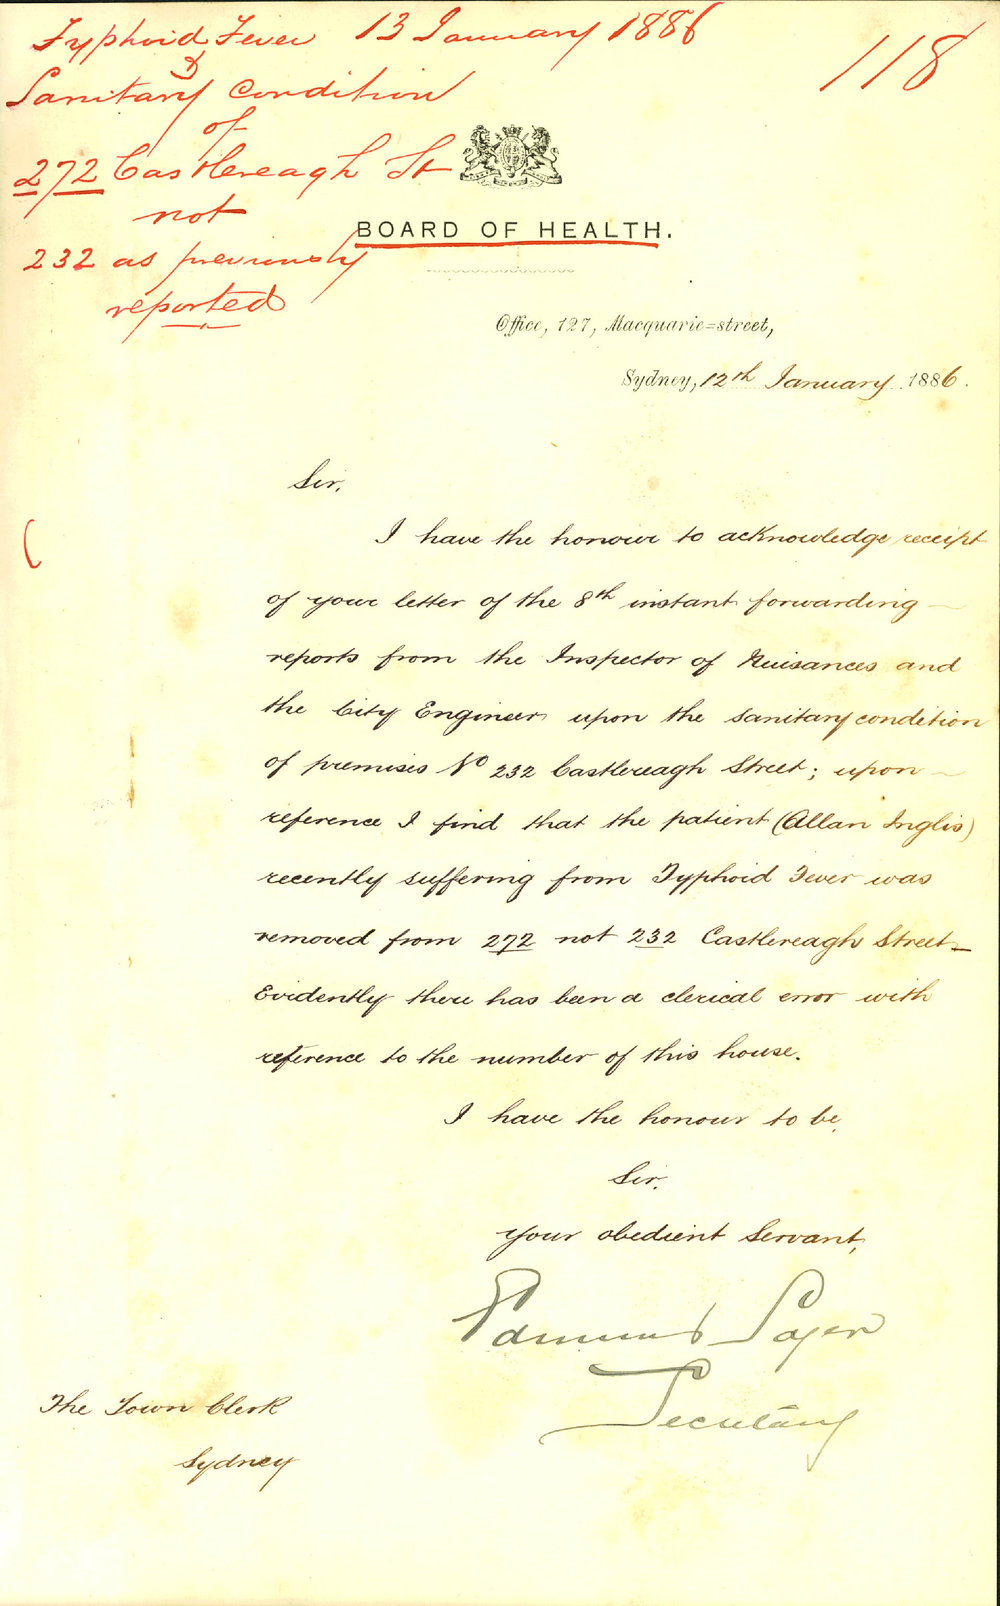 Typhoid Fever 13 January 1886
118
&
Sanitary Condition
of
272 Castlereagh St
not
232 as previously
reported
BOARD OF HEALTH.
Office, 127, Macquarie=street,
Sydney, 12th January 1886.
Sir,
I have the honour to acknowledge receipt
of your letter of the 8th instant forwarding
reports from the Inspector of Nuisances and
the City Engineer upon the sanitary condition
of premises No 232 Castlereagh Street; upon
reference I find that the patient (Allan Inglis)
recently suffering from Typhoid Fever was
removed from 272 not 232 Castlereagh Street_
Evidently there has been a clerical error with
reference to the number of this house.
I have the honour to be,
Sir,
your obedient Servant,
Edmund Sager
Secretary
The Town Clerk
Sydney